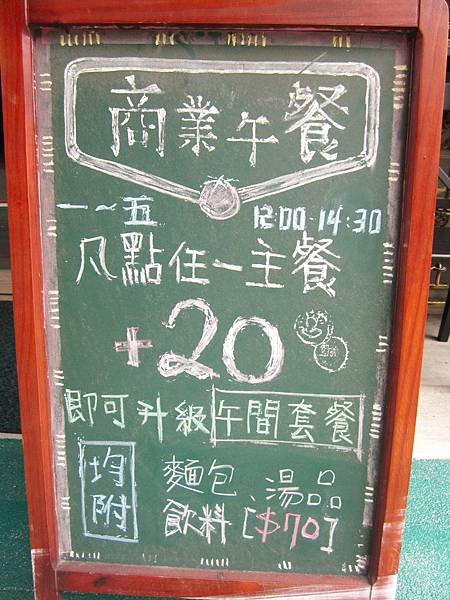 商業午餐
一~五 12:00-14:30
凡點任一主餐
+20
即可升級午間套餐
均附
麵包、湯品
飲料[$70]